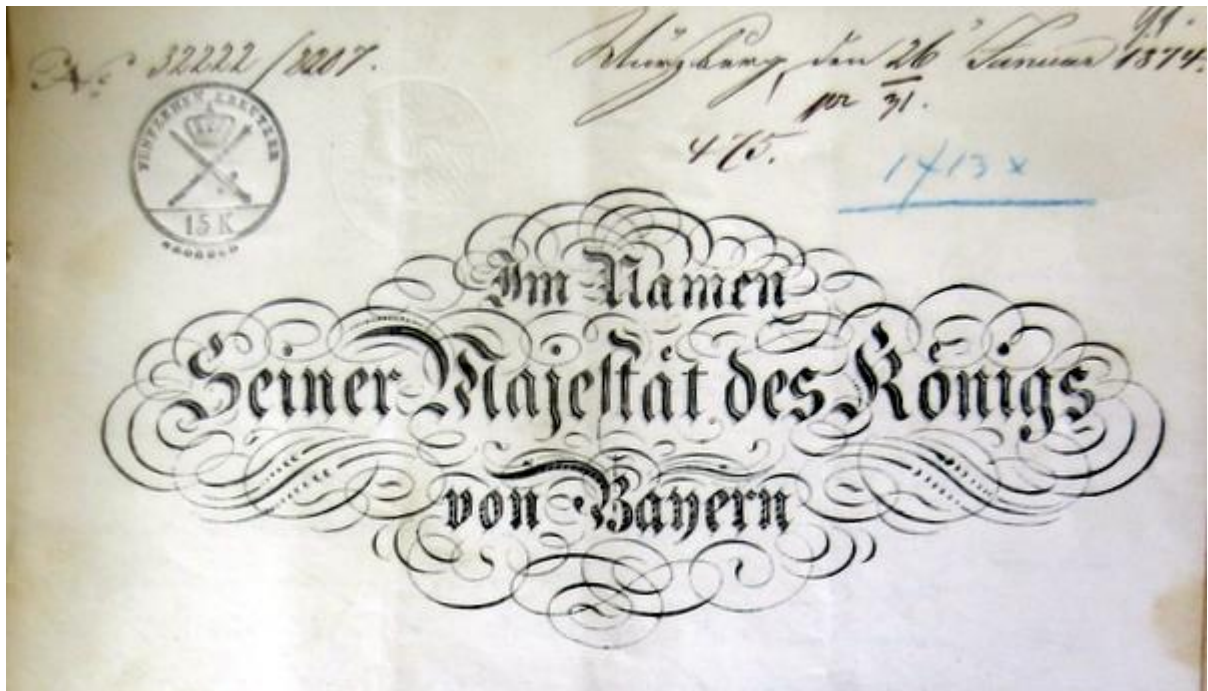 No 32222/2207.
Würzburg, den 26 Januar 1874.
pr 31.
475.
FÜNFZEHEN KREUTZER
15 K
Im Namen
Seiner Majestät des Königs
von Bayern